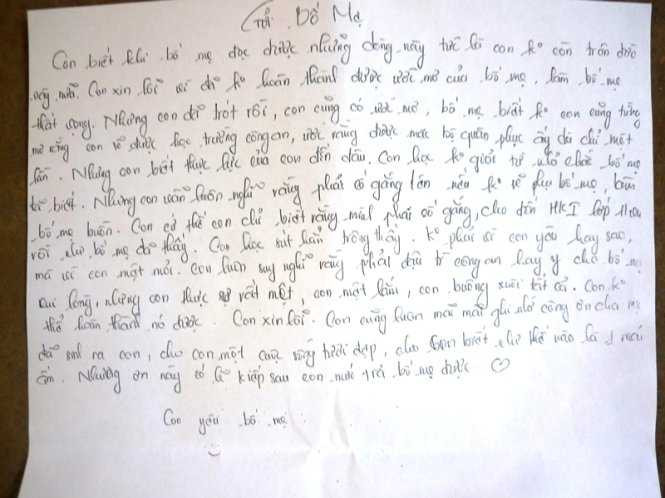 Gửi Bố Mẹ
Con biết khi bố mẹ đọc được những dòng này tức là con ko còn trên đời
này nữa. Con xin lỗi vì đã ko hoàn thành được ước mơ của bố mẹ, làm bố mẹ
thất vọng. Nhưng con đã trót rồi, con cũng có ước mơ, bố mẹ biết ko con cũng từng
mơ rằng con sẽ được học trường công an, ước rằng được mặc bộ quân phục ấy dù chỉ một
lần. Nhưng con biết thực lực của con đến đâu. Con học ko giỏi từ nhỏ chắc bố mẹ
biết. Nhưng con vẫn luôn nghĩ rằng phải cố gắng lên nếu ko sẽ phụ bố mẹ, làm
bố mẹ buồn. Con cứ thế con chỉ biết rằng mình phải cố gắng, cho đến HKI lớp
rồi như bố mẹ đã thấy. Con học sút hẳn trông thấy. Ko phải vì con yêu hay sao,
mà vì con mệt mỏi. Con luôn suy nghĩ rằng phải đậu trường công an hay y cho bố mẹ
vui lòng, nhưng con thực sự rất mệt, con mệt lắm, con buông xuôi tất cả. Con ko
thể hoàn thành nó được. Con xin lỗi. Con cũng luôn mãi mãi ghi nhớ công ơn cha mẹ
đã sinh ra con, cho con một cuộc sống tươi đẹp, cho con biết như thế nào là 1 mái
ấm. Những ơn này có lẽ kiếp sau con mới trả bố mẹ được ♡
Con yêu bố mẹ